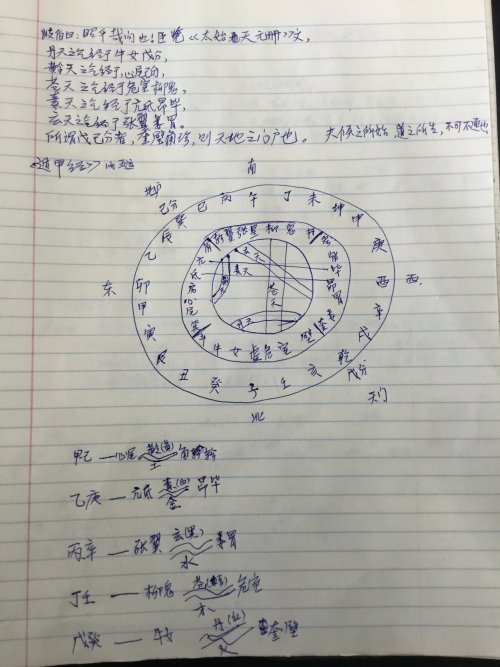 岐伯曰：昭乎哉问也！臣览《太始天元册》文，
丹天之气经于牛女戊分，
黅天之气经于心尾己分，
苍天之气经于危室柳鬼，
素天之气经于亢氐昴毕，
玄天之气经于张翼娄胃。
所谓戊己分者，奎壁角轸，则天地之门户也。 夫候之所始，道之所生，不可不通也
《遁甲经》
南
地户
己分
巽 巳 丙 午 丁 未 坤 申
庚
酉 西.
辛
戌
戊分
天门
乾
亥
壬
子
癸
丑
艮
寅
甲
卯
东
乙
辰
北
角 轸 翼 张 星 柳 鬼 井
参
觜
毕
昴
胃
娄
奎
壁 室 危 虚 女 牛
斗
箕
尾
心
房
氐
亢
素天
苍天
丹天
甲己 — 心尾 黅(黄) 角轸
土
乙庚 — 亢氐 素(白) 昴毕
金
丙辛 — 张翼 玄(黑) 娄胃
水
丁壬 — 柳鬼 苍(青) 危室
木
戊癸 — 牛女 丹(红) 奎壁
火